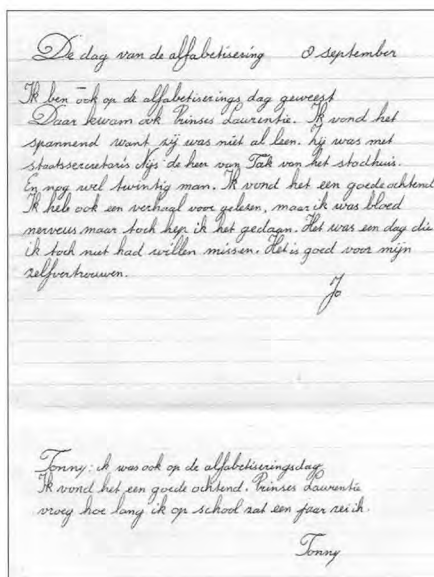 De dag van de alfabetisering 8 september
Ik ben ook op de alfabetiserings dag geweest
Daar kwam ook Prinses Laurentie. Ik vond het
spannend want zij was niet al leen. hij was met
staatssecretaris Nijs de heer van Tak van het stadhuis.
En nog wel twintig man. Ik vond het een goede ochtend
Ik hele ook een verhaal voor gelesen, maar ik was bloed
nerveus maar toch hep ik het gedaan. Het was een dag die
ik toch niet had willen missen. Het is goed voor mijn
zelfvertrouwen.
Jo
Tonny: ik was ook op de alfabetiseringsdag
Ik vond het een goede ochtend. Prinses Laurentie
vroeg hoe lang ik op school zat een jaar zei ik.
Tonny